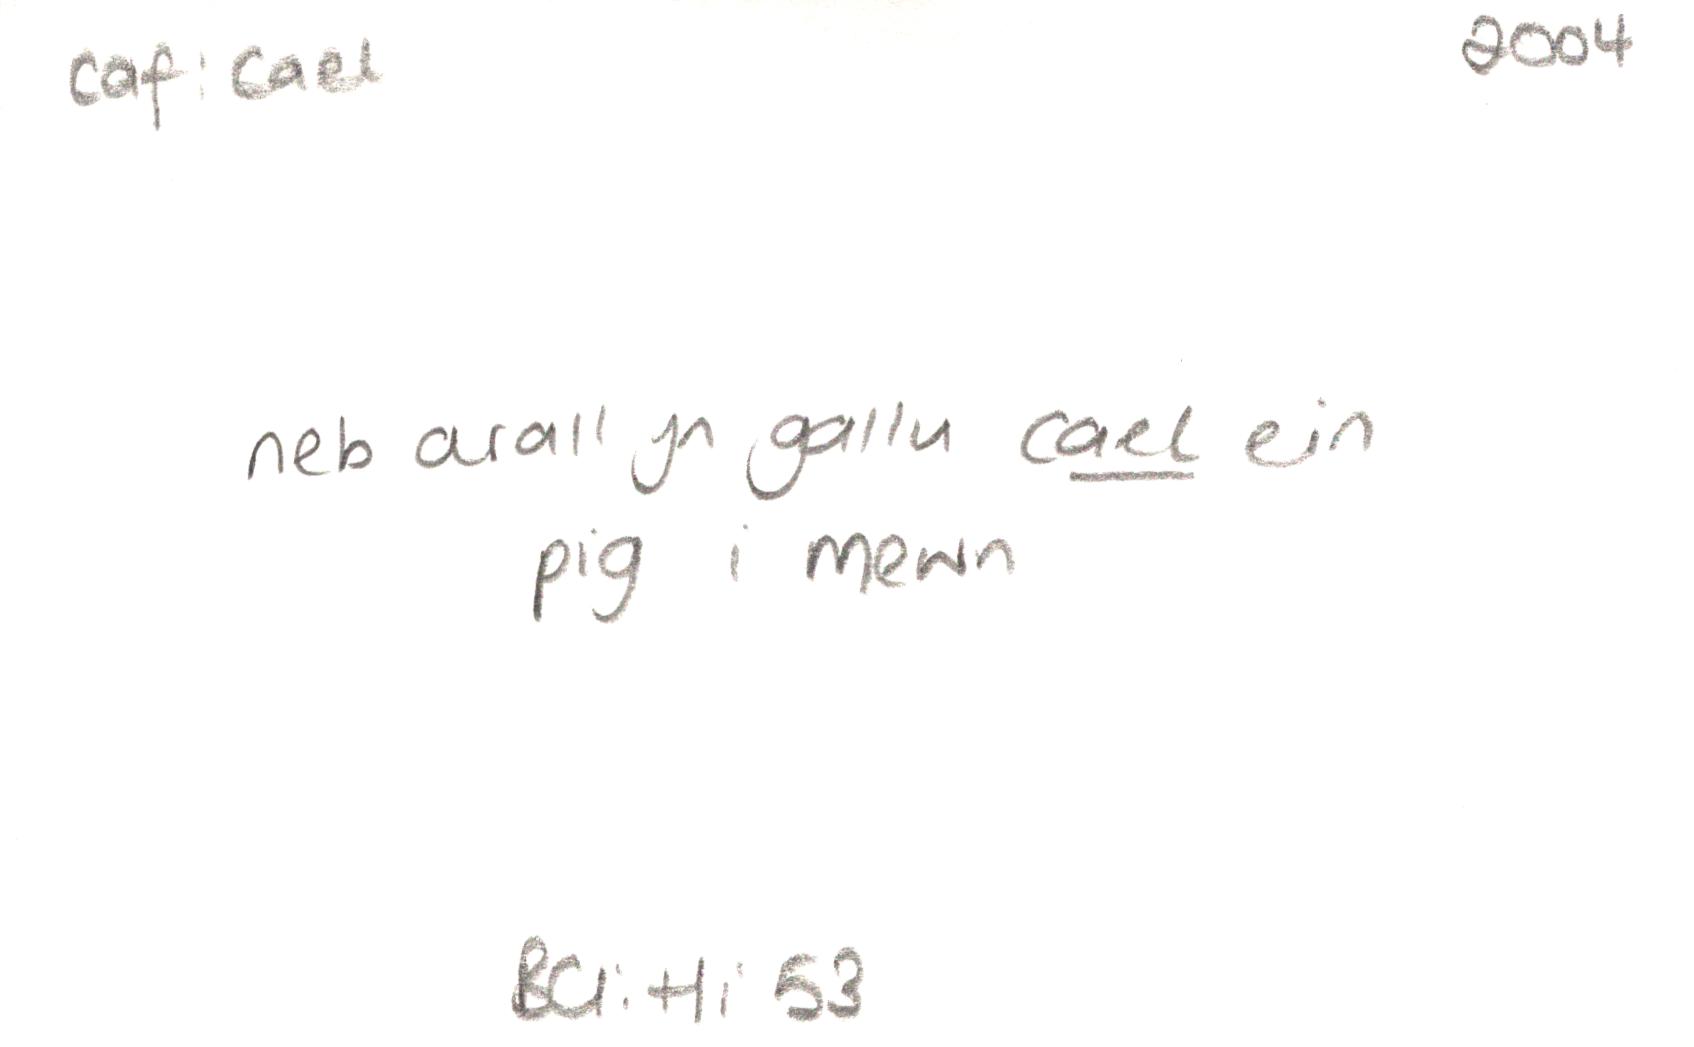 caf: cael
2004
neb arall yn gallu cael ein
pig i mewn
BCJ: Hi 53